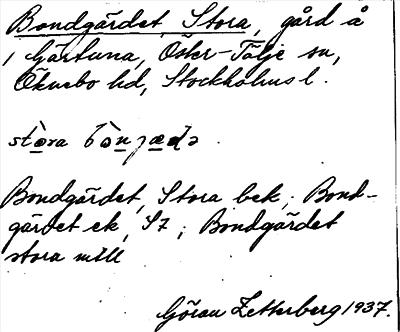 Bondgärdet, Stora, gård å
/ Gärtuna, Öster-Tälje sn,
Öknebo hd, Stockholms l.
stòra bònjædə.
Bondgärdet, Stora bek; Bond-
gärdet ek, S7; Bondgärdet
stora mtll
Göran Zetterberg 1937.